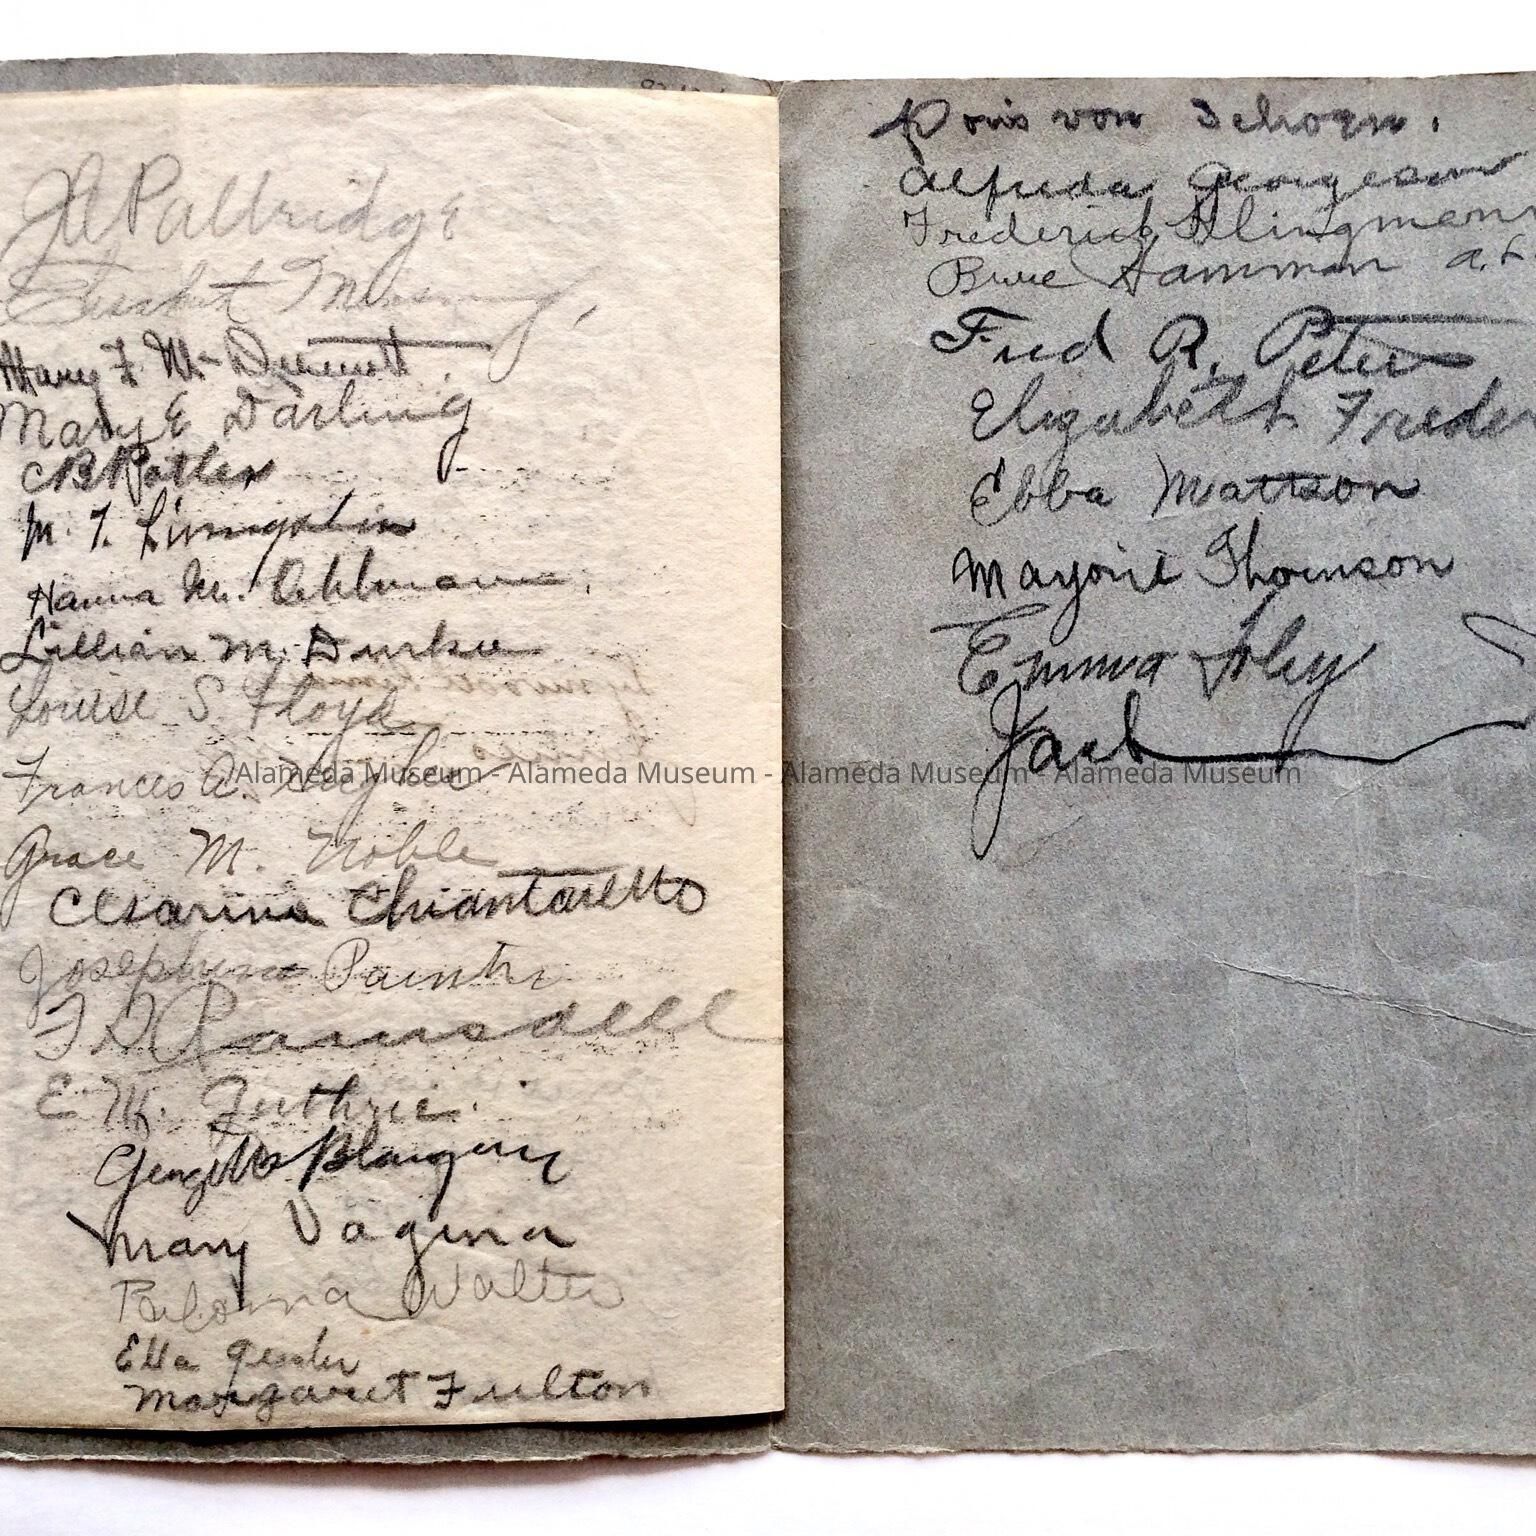 J A Paldridge
Mary F. Mc
Mary E Darling
C B
M. T.
Hanna M. Ohlmann.
Lillian M. Durkee
Louise S. Floyd
Frances A.
Grace M. Noble
Cesarina Chiantaretto
Josephine Painter
F D Ramsdell
E. M. Guthrie.
Georgette
Mary Vagina
Paloma Walter
Ella
Margaret Fulton
Doris von Schoen.
Alfreda Georgeson
Frederick Klingmann
Hamman A.
Fred R. Peter
Elizabeth Freder
Ebba Mattson
Marjorie Thomson
Emma Foley
Jack
Alameda Museum - Alameda Museum - Alameda Museum - Alameda Museum